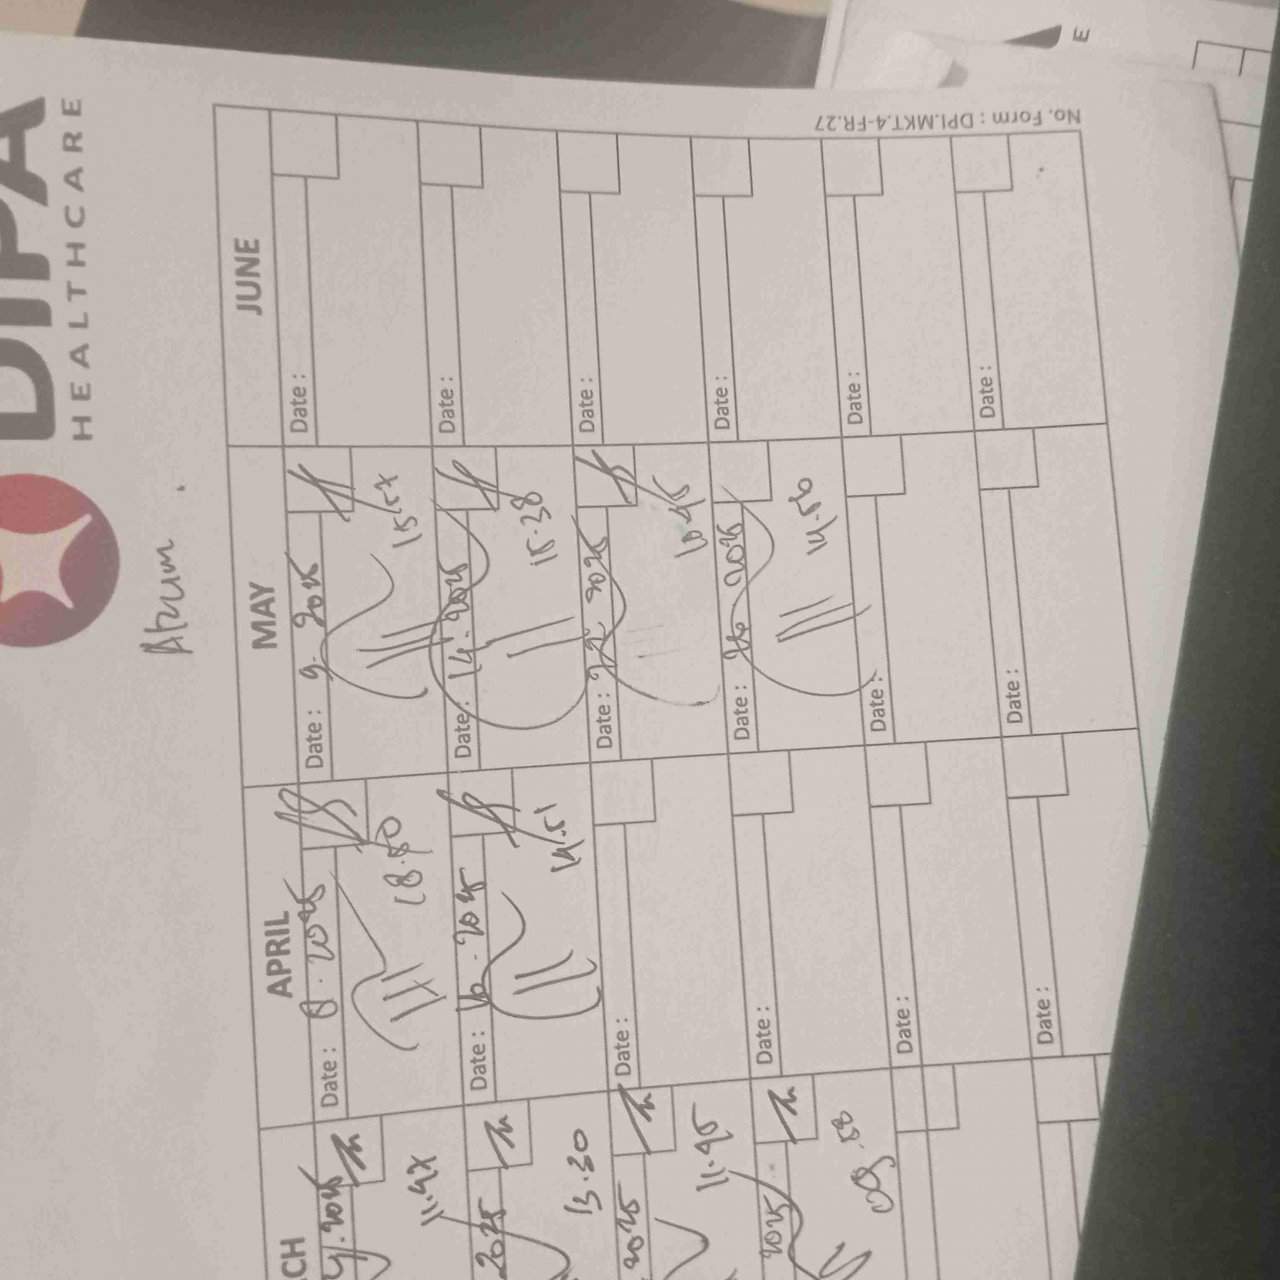 DIPA
HEALTHCARE
No. Form : DPI.MKT.4-FR.27
E
APRIL
MAY
JUNE
Date : 8. 2025
18.50
Date : 9. 2025
15.57
Date :
Date : 16. 2025
14.51
Date : 14. 2025
15.38
Date :
Date :
Date : 22 2025
10.45
Date :
Date :
Date : 26. 2025
14.50
Date :
Date :
Date :
Date :
Date :
Date :
Date :
2025
13.30
2025
11.45
2025
09.58